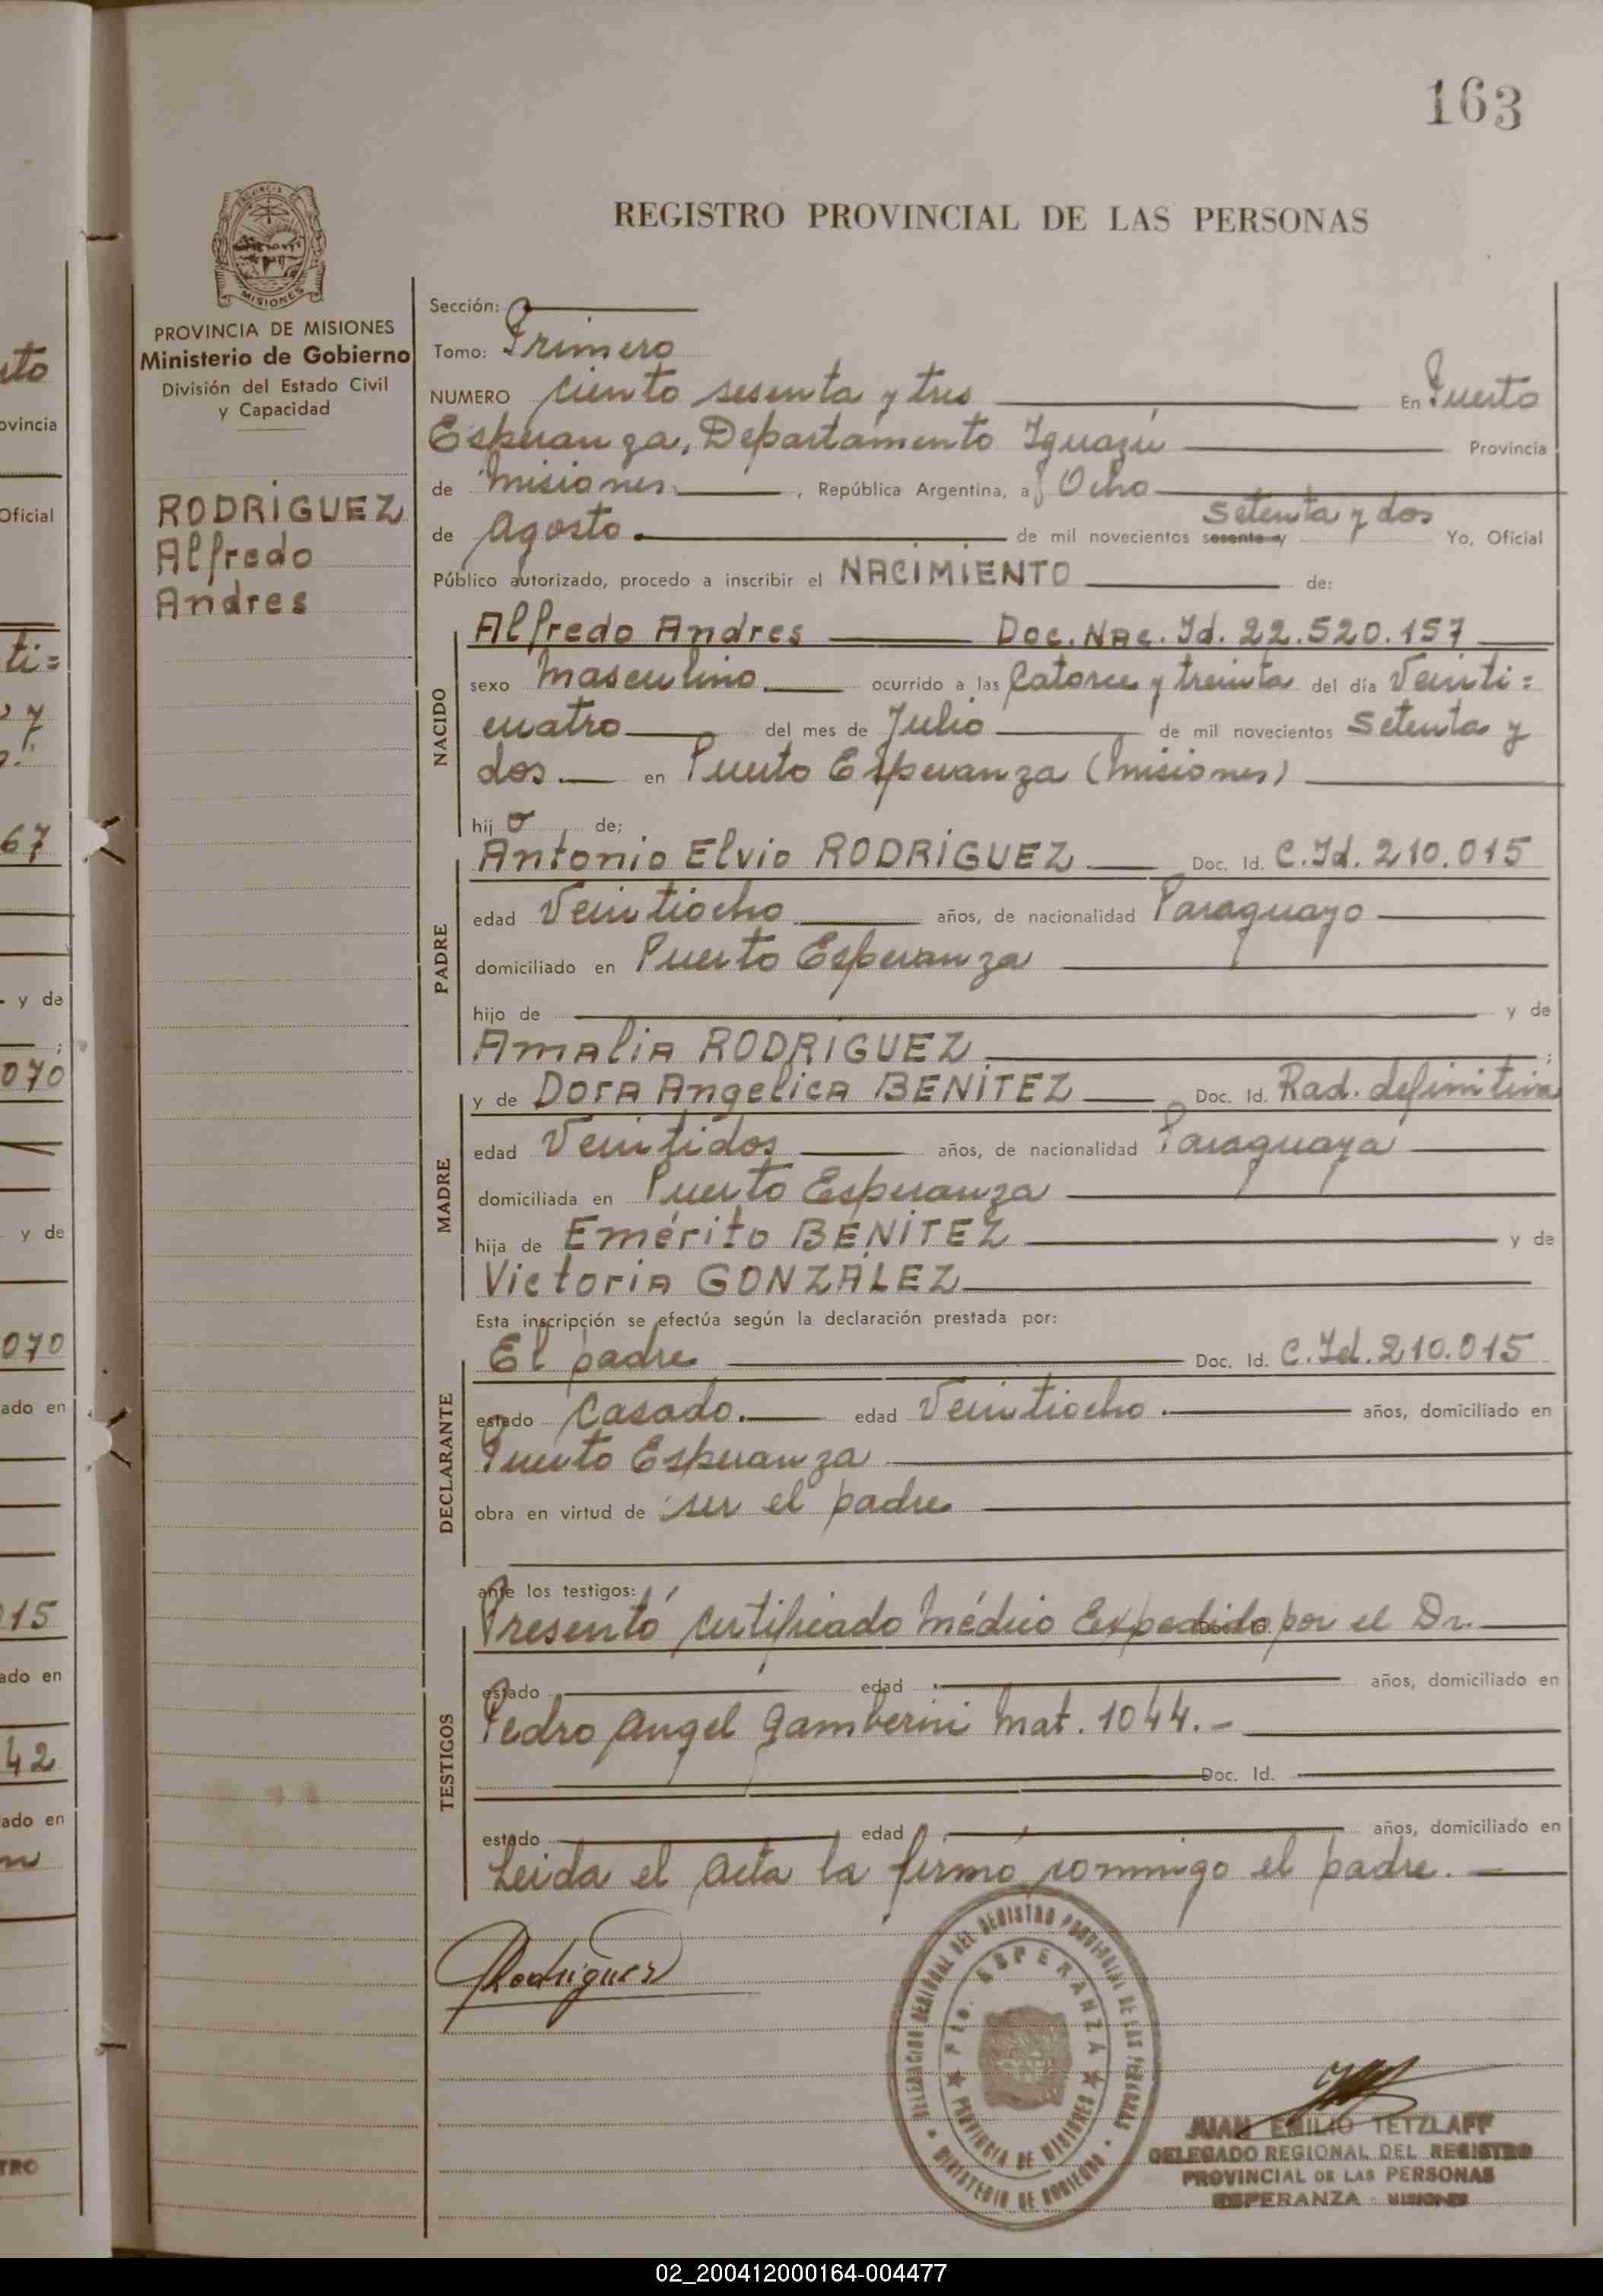 163
REGISTRO PROVINCIAL DE LAS PERSONAS
MISIONES
PROVINCIA DE MISIONES
Ministerio de Gobierno
División del Estado Civil
y Capacidad
RODRÍGUEZ
Alfredo
Andres
Sección:
Tomo: Primero
NUMERO ciento sesenta y tres En Puerto
Esperanza, Departamento Iguazú Provincia
de Misiones, República Argentina, a Ocho
setenta y dos
de Agosto. de mil novecientos sesenta y Yo, Oficial
Público autorizado, procedo a inscribir el NACIMIENTO de:
NACIDO
Alfredo Andres Doc. Nac. Id. 22.520.157
sexo Masculino ocurrido a las Catorce y treinta del día Veinti=
cuatro del mes de Julio de mil novecientos Setenta y
dos. en Puerto Esperanza (Misiones)
hij o de;
PADRE
Antonio Elvio RODRÍGUEZ Doc. Id. C.Id. 210.015
edad Veintiocho años, de nacionalidad Paraguayo
domiciliado en Puerto Esperanza
hijo de y de
Amalia RODRIGUEZ ;
MADRE
y de Dora Angelica BENÍTEZ Doc. Id. Rad. definitiva
edad Veintidos años, de nacionalidad Paraguaya
domiciliada en Puerto Esperanza
hija de Emérito BENÍTEZ y de
Victoria GONZÁLEZ
Esta inscripción se efectúa según la declaración prestada por:
DECLARANTE
El padre Doc. Id. C.Id. 210.015
estado Casado. edad Veintiocho. años, domiciliado en
Puerto Esperanza
obra en virtud de ser el padre
ante los testigos:
TESTIGOS
Presentó certificado Médico Expedido por el Dr.
estado edad años, domiciliado en
Pedro Angel Gamberini Mat. 1044.-
Doc. Id.
estado edad años, domiciliado en
Leida el Acta la firmó conmigo el padre.
Rodriguez
DELEGACION REGIONAL DEL REGISTRO PROVINCIAL DE LAS PERSONAS
PTO. ESPERANZA
PROVINCIA DE MISIONES
MINISTERIO DE GOBIERNO
JUAN EMILIO TETZLAFF
DELEGADO REGIONAL DEL REGISTRO
PROVINCIAL DE LAS PERSONAS
ESPERANZA - MISIONES
ovincia
Oficial
ti=
67
y de
070
y de
070
ado en
015
ado en
42
ado en
TRO
02_200412000164-004477